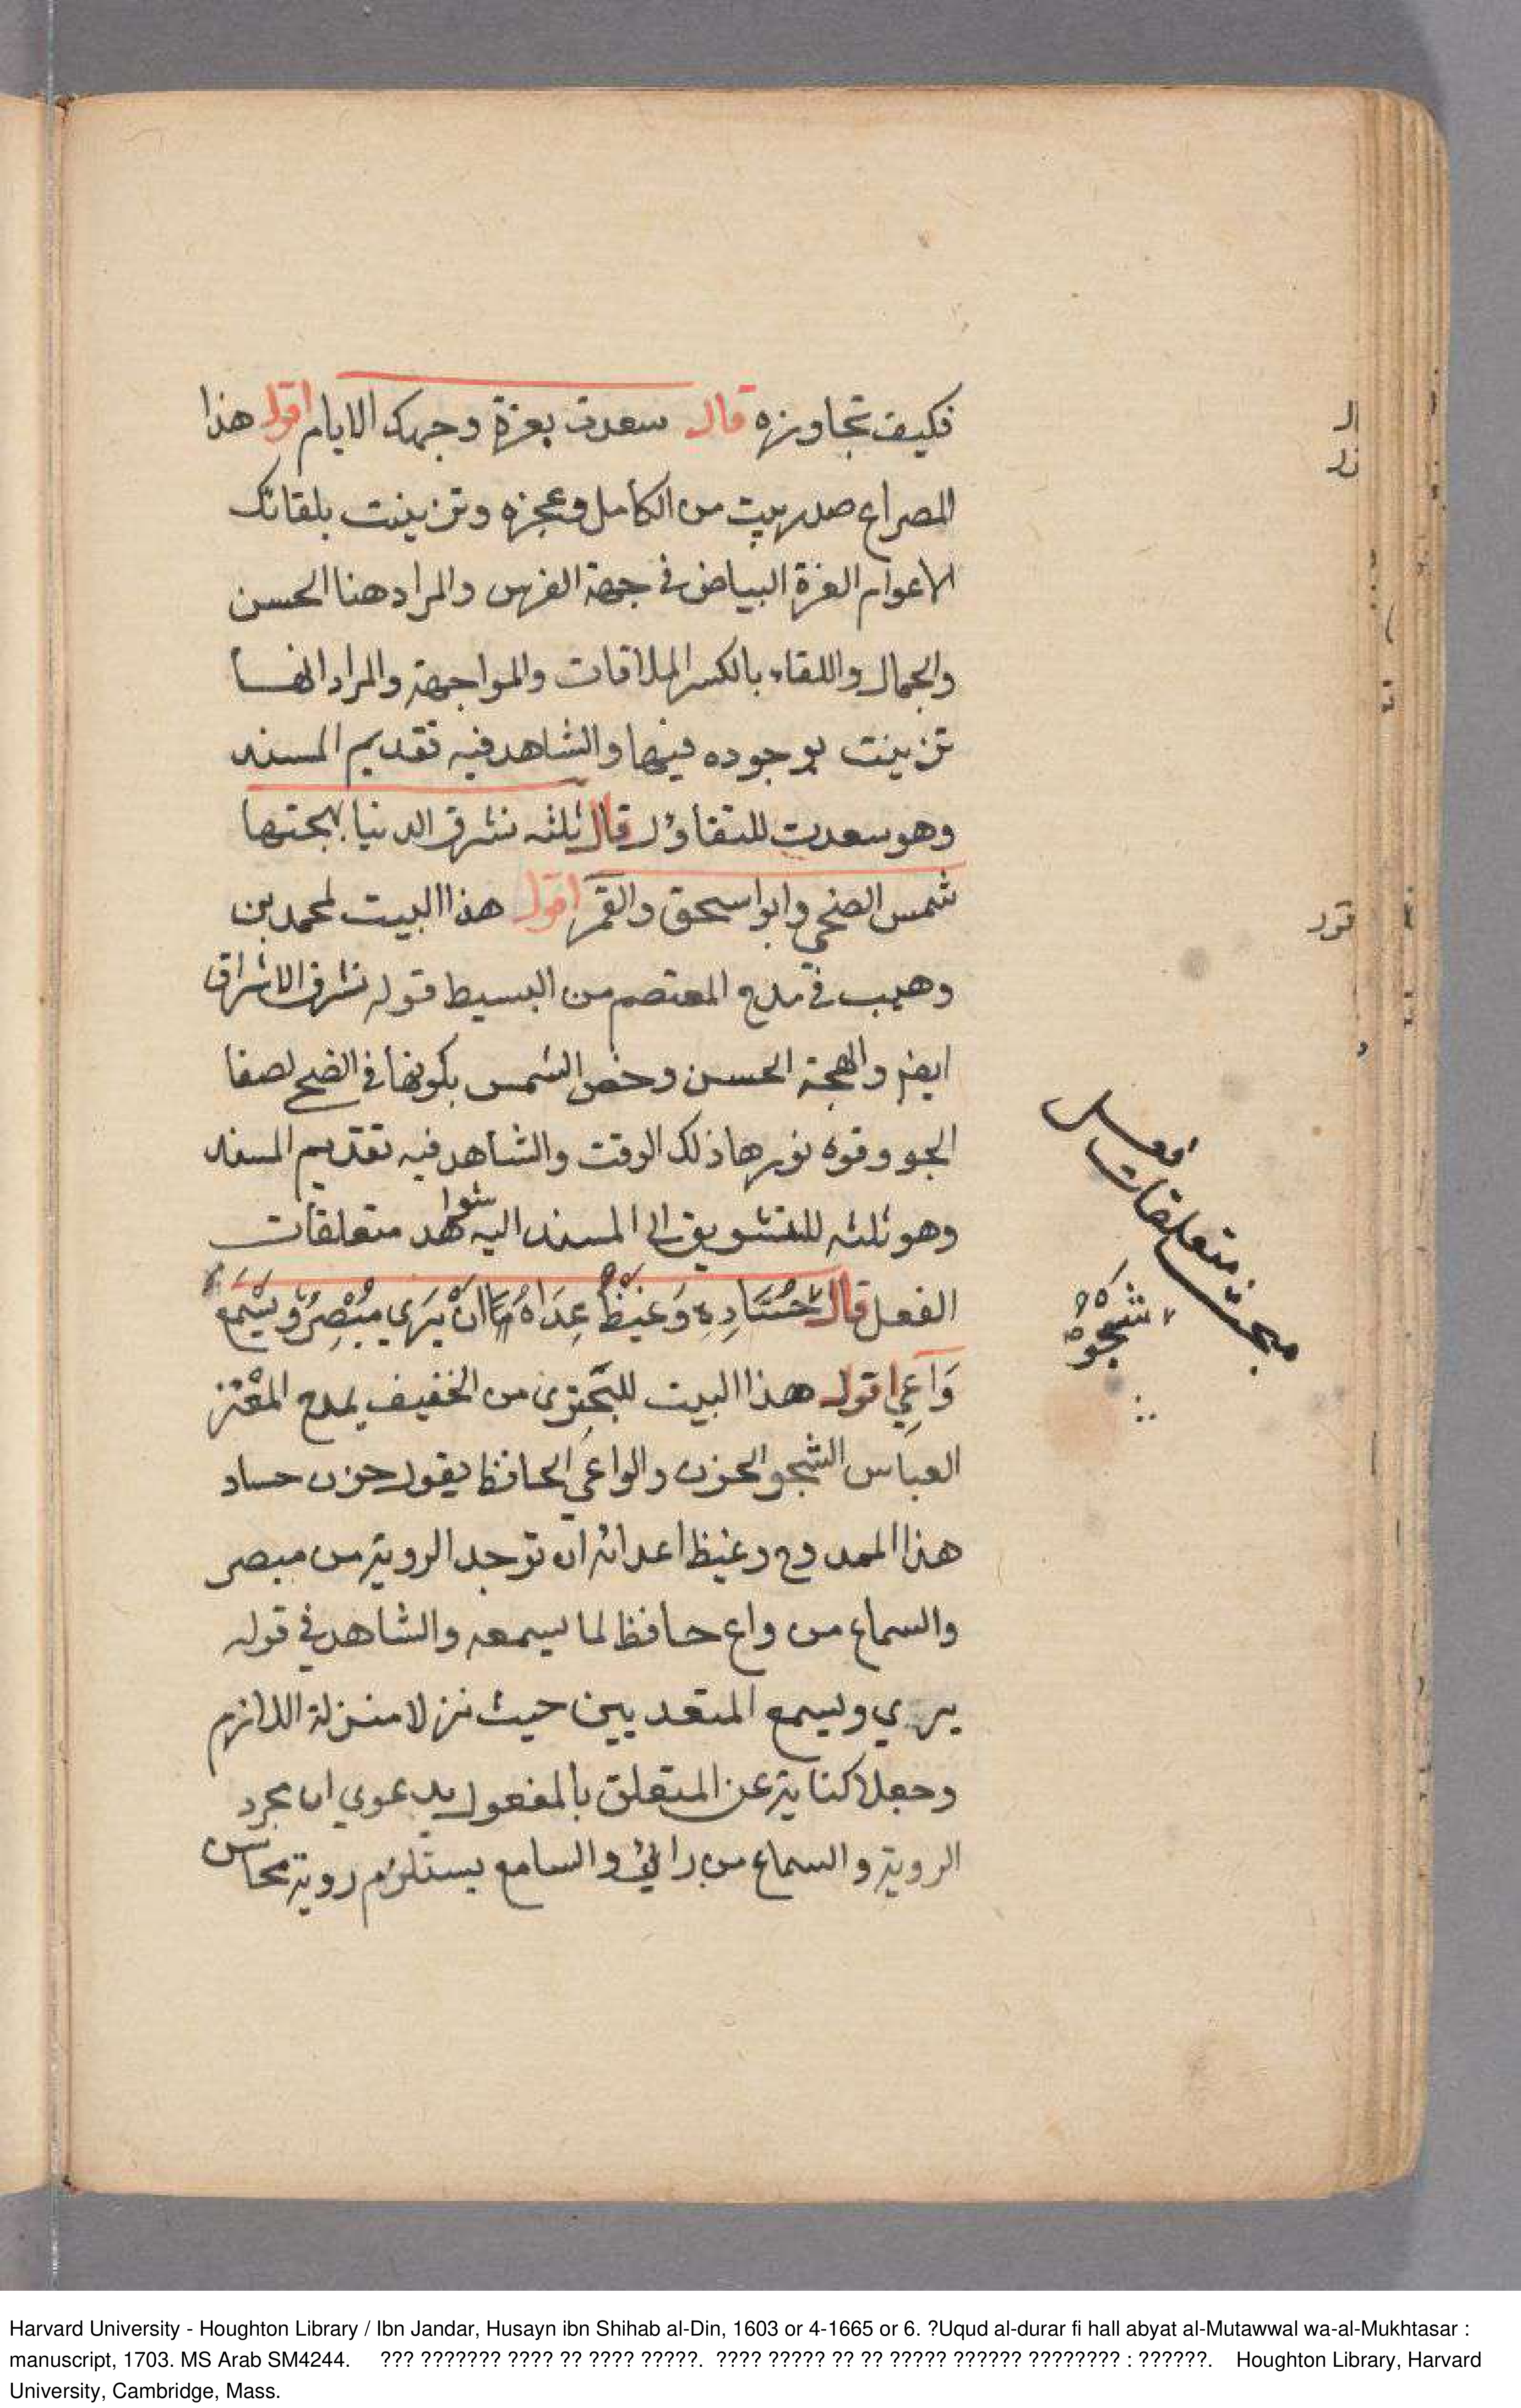 فكيف تجاوزه قال سعدت بغرة وجهك الايام اقول هذا
المصراع صدر بيت من الكامل وعجزه وتزينت بلقائك
الاعوام الغرة البياض في جبهة الفرس والمراد هنا الحسن
والجمال واللقاء بالكسر الملاقات والمواجهة والمراد انها
تزينت بوجوده فيها والشاهد فيه تقديم المسند
وهو سعدت للتفاؤل قال ثلثه تشرق الدنيا ببهجتها
شمس الضحى وابو اسحق والقمر اقول هذا البيت لمحمد بن
وهيب في مدح المعتصم من البسيط قوله تشرق الاشراق
والبهجة الحسن وخص الشمس بكونها في الضحى لصفا
الجو وقوة نورها ذلك الوقت والشاهد فيه تقديم المسند
وهو ثلثه للتشويق الى المسند اليه شواهد متعلقات
الفعل قال حُسَّادِهِ وَغَيْظُ عِدَاهُ اَنْ يَرَي مُبْصِرٌ وَيَسْمَعَ
وَاعِي اقول هذا البيت للبحتري من الخفيف يمدح المعتز
العباس الشجو الحزن والواعي الحافظ يقول حزن حساد
هذا الممدوح وغيظ اعدائه ان توجد الروية من مبصر
والسماع من واع حافظ لما يسمعه والشاهد في قوله
يري ويسمع المتعديين حيث نزلا منزلة اللازم
وجعلا كناية عن المتعلق بالمفعول بدعوي ان مجرد
الروية والسماع من رائي والسامع يستلزم روية محاسن
مبحث متعلقات
شجو
قول